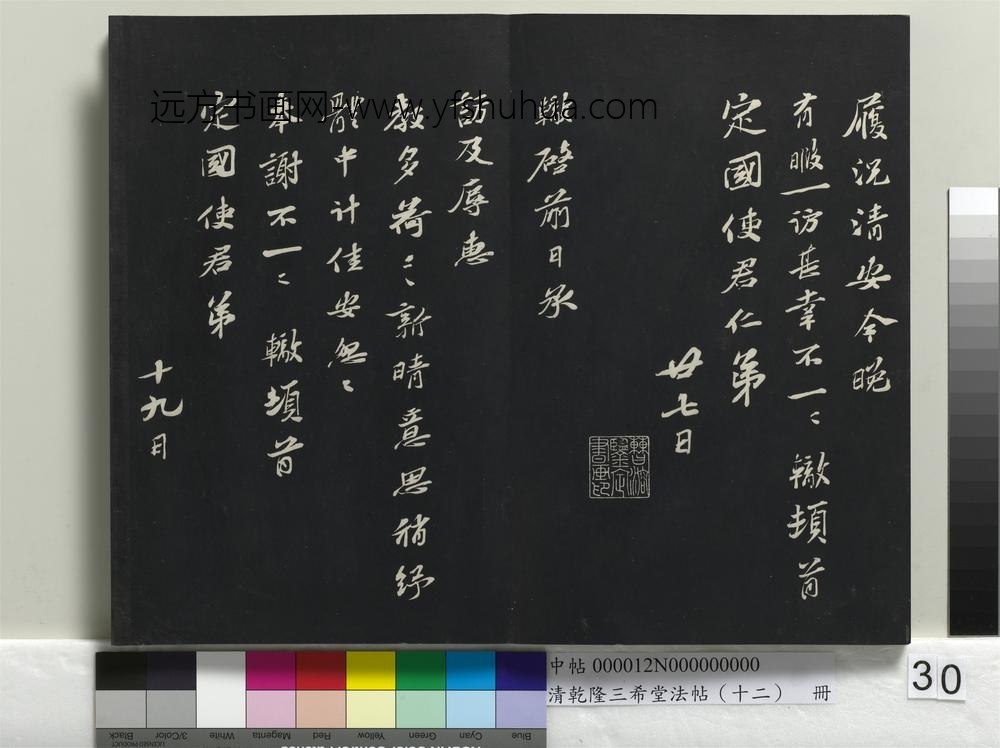 履況清安今晚
有暇一訪甚幸不一〻 轍頓首
定國使君仁弟
廿七日
轍啓前日承
訪及辱惠
教多荷〻新晴意思稍紓
體中計佳安忽〻
奉謝不一〻 轍頓首
定國使君弟
十九日
远方书画网-www.yfshuhua.com
中帖 000012N000000000
清乾隆三希堂法帖（十二） 冊
30
Black
3/Color
White
Magenta
Red
Yellow
Green
Cyan
Blue